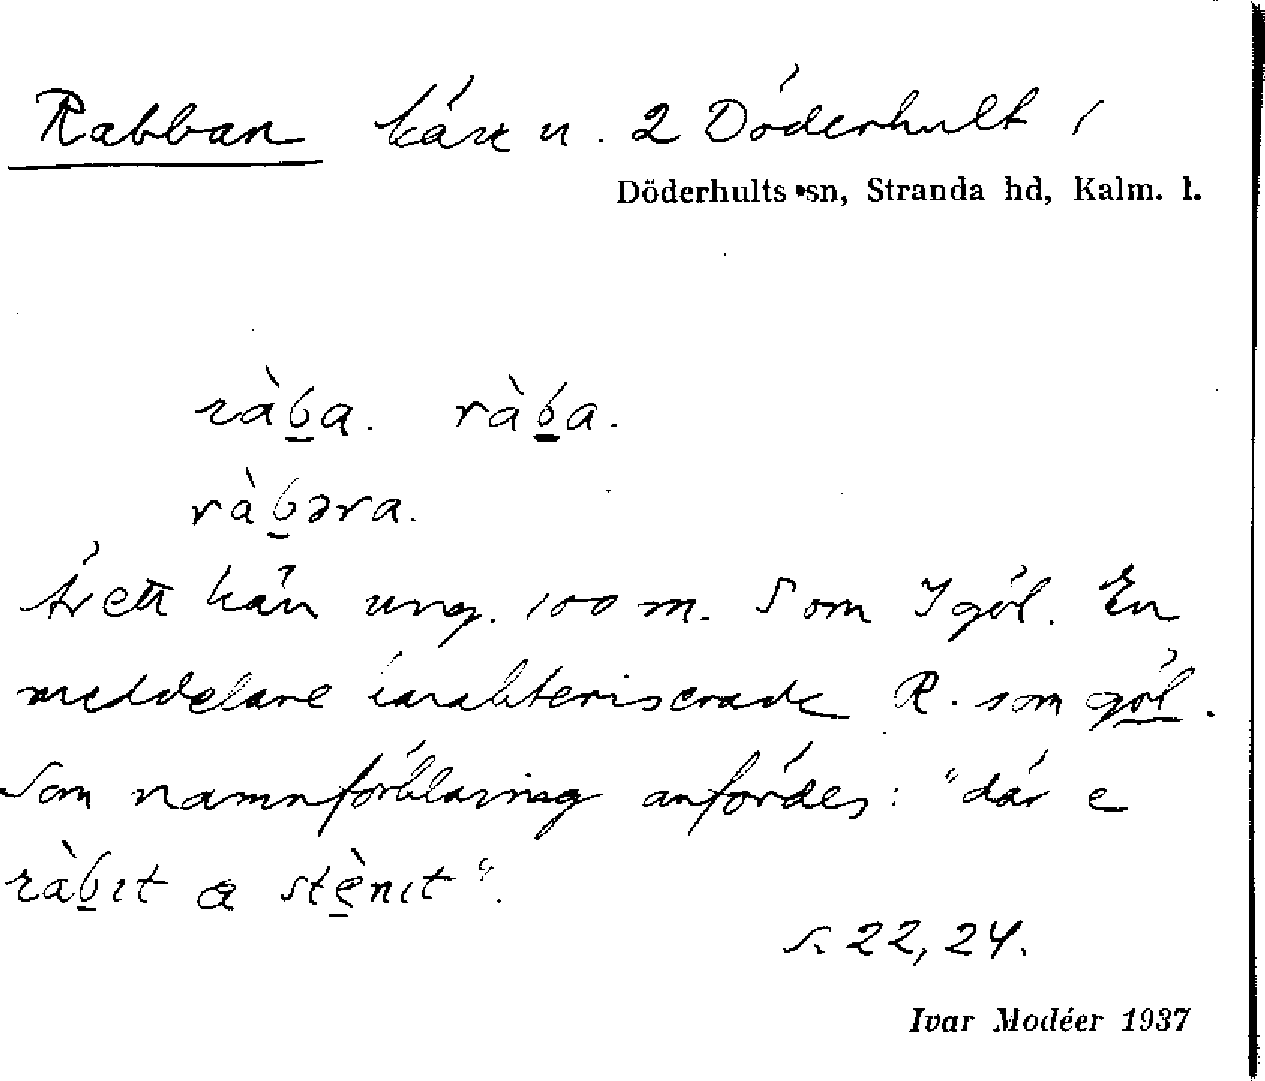 Rabban kärr u. 2 Döderhult 1
Döderhults sn, Stranda hd, Kalm. l.
ràb̲a. ràb̲a.
ràb̲əra.
Är ett kärr ung. 100 m. S om Igöl. En
meddelare karakteriserade R. som göl.
Som namnförklaring anfördes: "där e
ràb̲ıt a stè̲nıt".
s. 22, 24.
Ivar Modéer 1937